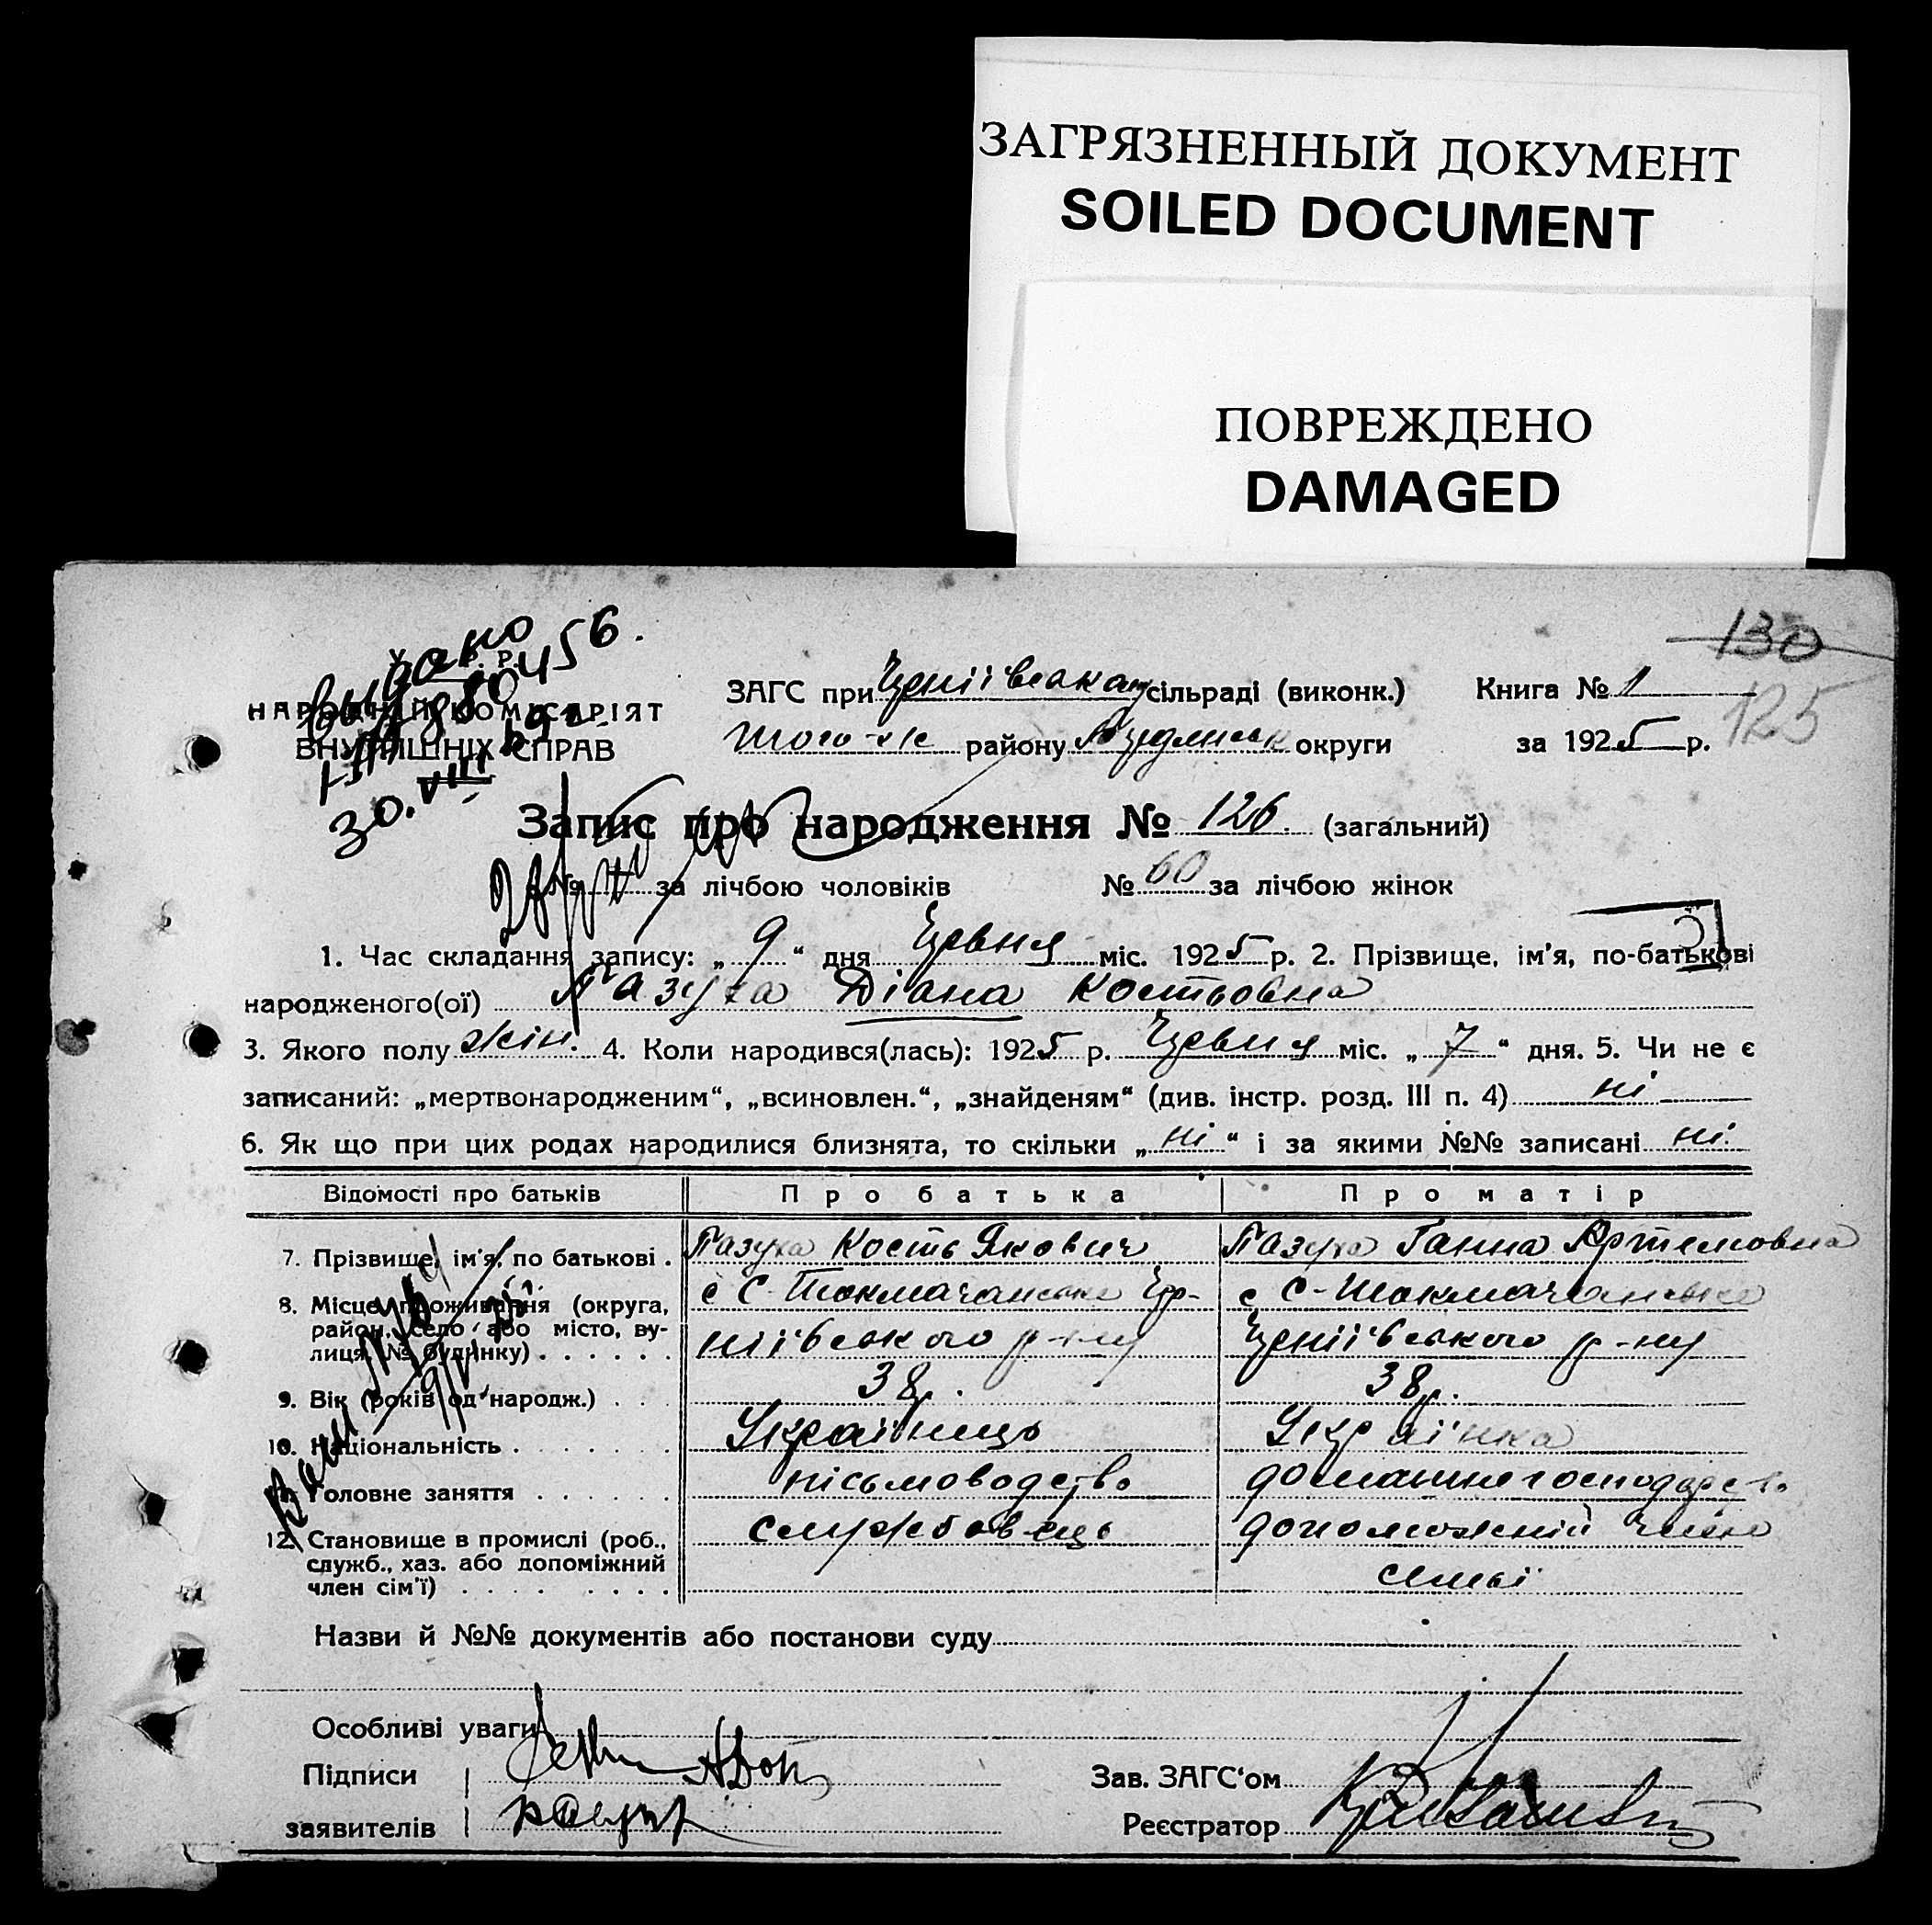 ЗАГРЯЗНЕННЫЙ ДОКУМЕНТ
SOILED DOCUMENT
ПОВРЕЖДЕНО
DAMAGED
130
125
видано
30.VIII
НАРОДНІЙ КОМІСАРІЯТ
ВНУТРІШНІХ СПРАВ
ЗАГС при сільраді (виконк.) Книга № 1
того-ж району округи за 1925 р.
Запис про народження № 126. (загальний)
№ за лічбою чоловіків № 60 за лічбою жінок
1. Час складання запису: „ 9 “ дня Червня міс. 1925 р. 2. Прізвище, ім'я, по-батькові
народженого(ої) Пазуха Діана Костьовна
3. Якого полу жін. 4. Коли народився(лась): 1925 р. Червня міс. „ 7 “ дня. 5. Чи не є
записаний: „мертвонародженим“, „всиновлен.“, „знайденям“ (див. інстр. розд. III п. 4) ні
6. Як що при цих родах народилися близнята, то скільки „ ні “ і за якими №№ записані ні.
Відомості про батьків Про батька Про матір
7. Прізвище, ім'я, по батькові . Пазуха Кость Якович Пазуха Ганна Артемовна
8. Місце проживання (округа, район, село або місто, вулиця, № будинку) . . . . . .
с С-Токмачанське р-ну
с С-Токмачанське р-ну
9. Вік (років од народж.) . . . 38 р. 38 р.
10. Національність . . . . . . Українець Українка
11. Головне заняття . . . . . . пісьмоводство домашне господарство
12. Становище в промислі (роб., служб., хаз. або допоміжний член сім'ї) . . . . . . . .
службовець
допоможній член
семьї
Назви й №№ документів або постанови суду
Особливі уваги
Підписи Зав. ЗАГС‘ом
заявителів Реєстратор